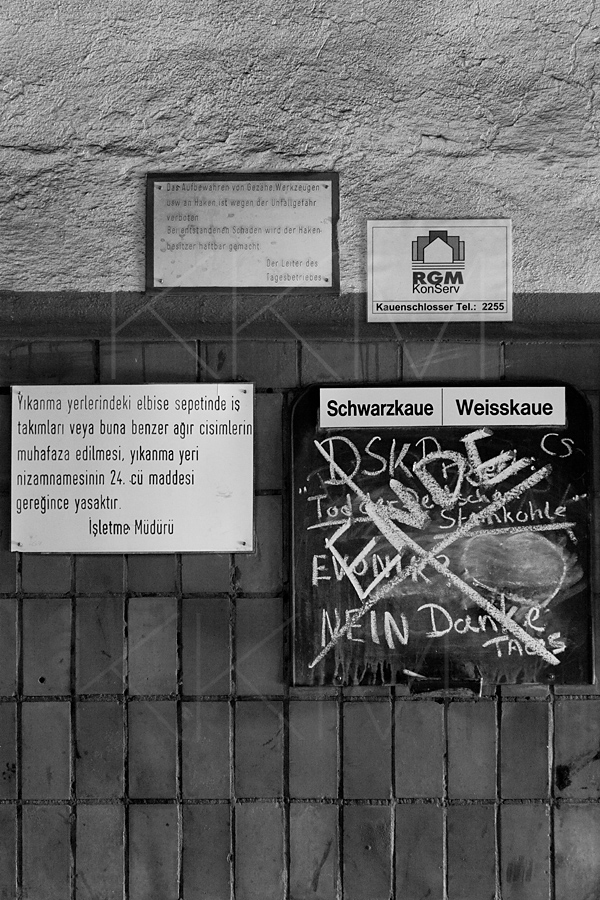 Das Aufbewahren von Gezähe, Werkzeugen
usw an Haken, ist wegen der Unfallgefahr
verboten
Bei entstandenen Schäden wird der Haken-
besitzer haftbar gemacht.
Der Leiter des
Tagesbetriebes
RGM
KonServ
Kauenschlosser Tel.: 2255
Yıkanma yerlerindeki elbise sepetinde iş
takımları veya buna benzer ağır cisimlerin
muhafaza edilmesi, yıkanma yeri
nizamnamesinin 24. cü maddesi
gereğince yasaktır.
İşletme Müdürü
Schwarzkaue Weisskaue
DSKD CS
ENDE
Tod der Deutschen
Steinkohle
NEIN Danke
KKM